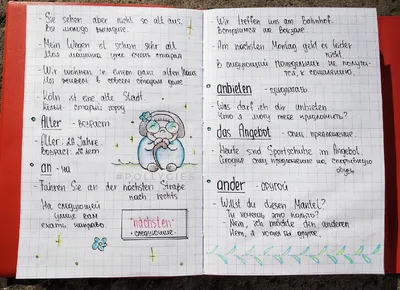 - Sie sehen aber nicht so alt aus.
Вы молодо выглядите.
- Mein Wagen ist schon sehr alt.
Моя машина уже очень старая
- Wir wohnen in einem ganz alten Haus
Мы живём в совсем старом доме
- Köln ist eine alte Stadt.
Кёльн - старый город
Alter - возраст
- Alter: 20 Jahre.
Возраст: 20 лет
an - на
- Fahren Sie an der nächsten Straße
nach rechts
На следующей
улице вам
ехать направо
"nächsten"
- следующие.
- Wir treffen uns am Bahnhof.
Встретимся на вокзале
- Am nächsten Montag geht es leider
nicht
В следующий понедельник не получит-
ся, к сожалению.
anbieten - предлагать.
- Was darf ich dir anbieten
Что я могу тебе предложить?
das Angebot - спец предложение.
- Heute sind Sportschuhe im Angebot.
Сегодня спец предложение на спортивную
обувь
ander - другой
- Willst du diesen Mantel?
Ты хочешь это пальто?
- Nein, ich möchte den anderen
Нет, я хотел бы другое.